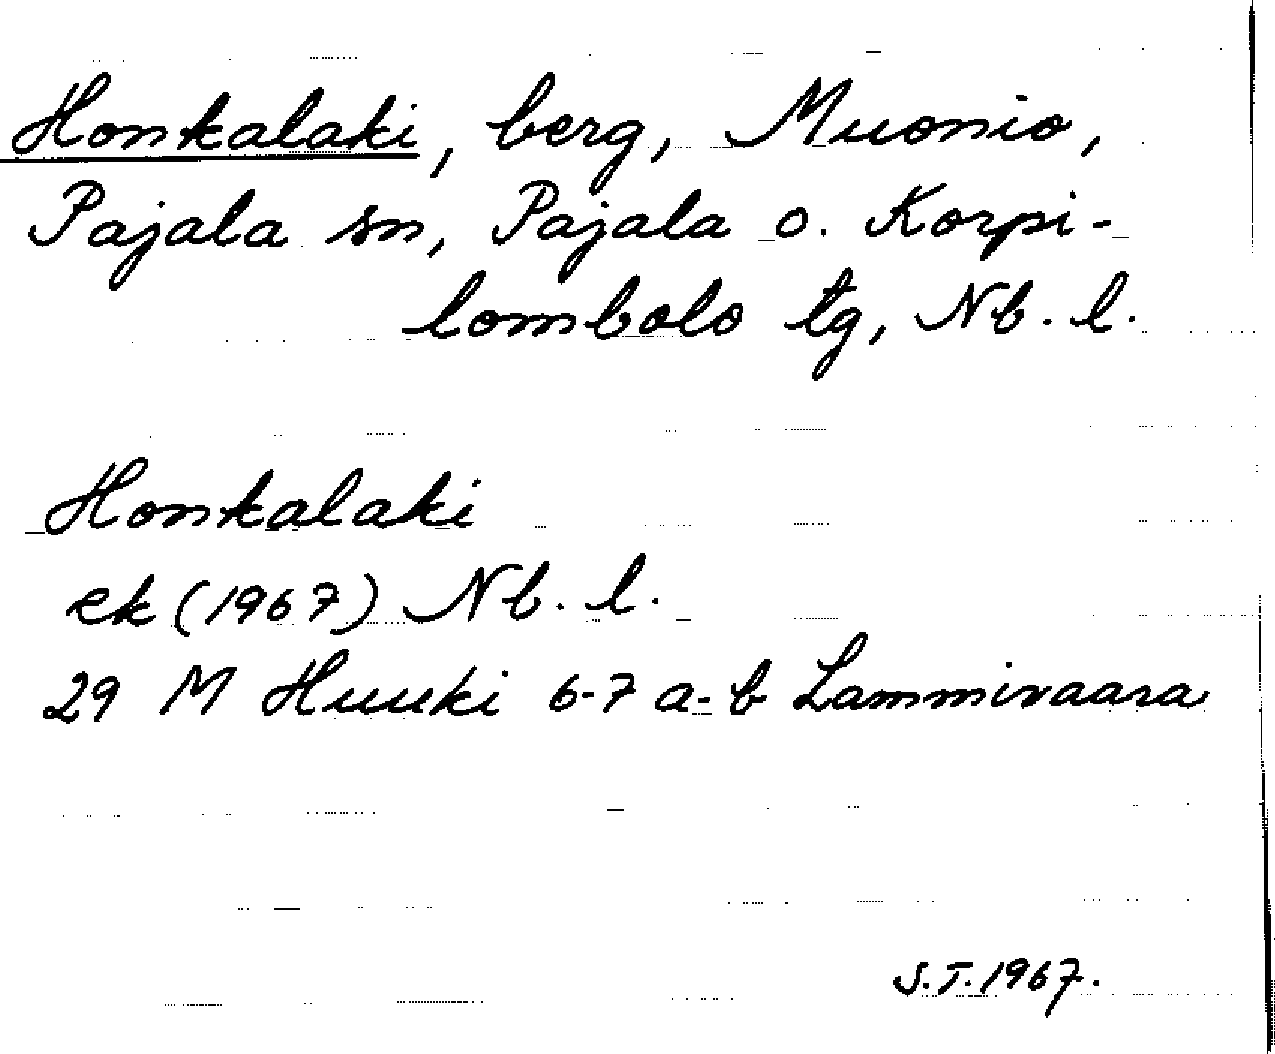 Honkalaki, berg, Muonio,
Pajala sn, Pajala o. Korpi-
lombolo tg, Nb. l.
Honkalaki
ek (1967) Nb. l.
29 M Huuki 6-7 a-b Lammivaara
S.T. 1967.